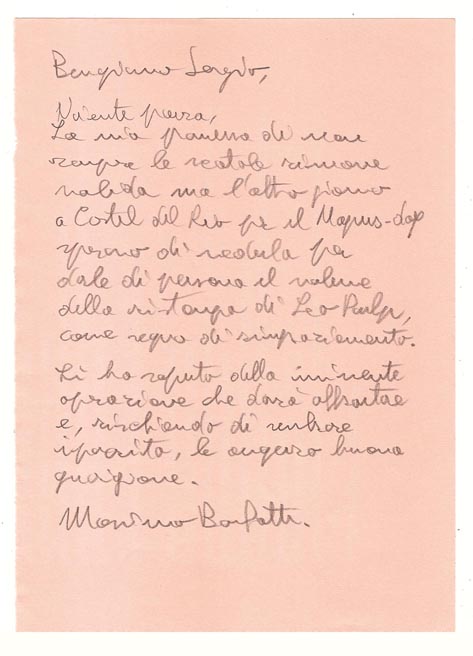 Bongiorno Sergio,
Niente paura,
La mia promessa di non
rompere le scatole rimane
valida ma l'altro giorno
a Castel del Rio per il Magnus-day
speravo di vederla per
darle di persona il volume
della ristampa di Leo Pulp,
come segno di ringraziamento.
Si ha saputo della imminente
operazione che dovrà affrontare
e, rischiando di sembrare
ipocrita, le auguro buona
guarigione.
Massimo Bonfatti.